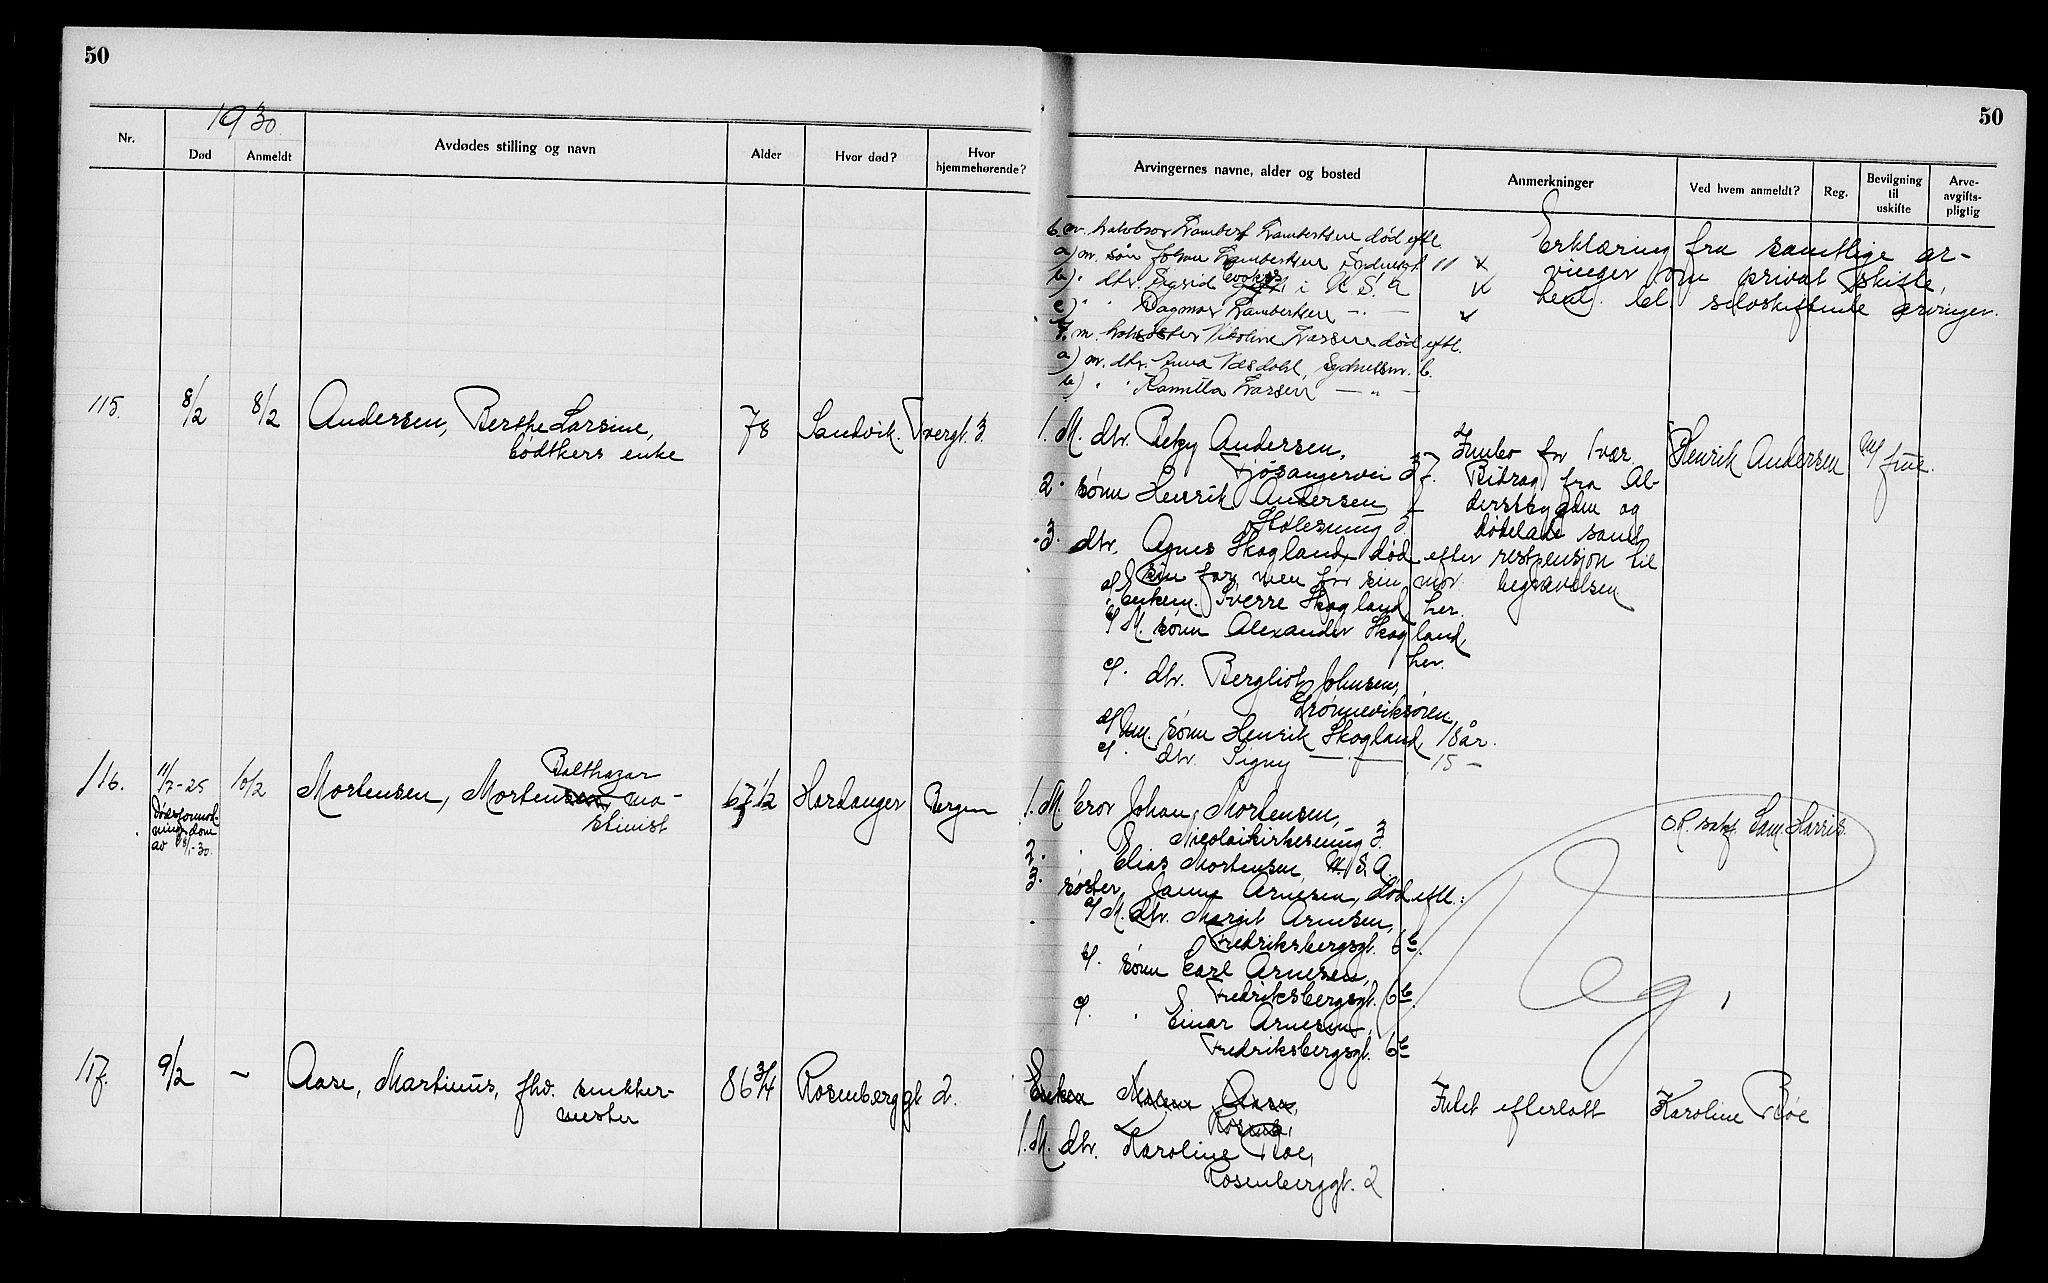 50
50
1930.
Nr.
Død
Anmeldt
Avdødes stilling og navn
Alder
Hvor død?
Hvor
hjemmehørende?
Arvingernes navne, alder og bosted
Anmerkninger
Ved hvem anmeldt?
Reg.
Bevilgning
til
uskifte
Arve-
avgifts-
pligtig
6. m. halvbror Lambert Lambertsen død eftl.
a) m. søn Johan Lambertsen 11
b) " dtr. Sigrid i U.S.A
c) " " Dagmar Lambertsen — " —
7. m. halvsøster Nikoline Larsen død eftl.
a) m. dtr. Anna Sydnessm. 6.
b) " " Kamilla Larsen — " —
Erklæring fra samtlige ar-
vinger om privat skifte,
beal. bl. selvskiftende arvinger.
115.
8/2
8/2
Andersen, Berthe Larsine,
bødkers enke
78
Sandvik.
Tvergt. 3.
1. M. dtr. Betzy Andersen,
Fjøsangervei 37.
2. " sønn Henrik Andersen,
Stølesmug 3
3. dtr. Agnes Skogland, død efter
sin far, men før sin mor.
a/ Enkem. Sverre Skogland, her.
b/ M. sønn Alexander Skogland,
her.
c/ " dtr. Bergliot Johnsen,
Grønneviksøren,
d/ Um. sønn Henrik Skogland, 18 år.
e/ " dtr. Signy — " — 15 —
Innbo for
Bidrag fra Al-
derstrygden og
dødelade samt
restpensjon til
begravelsen
Henrik Andersen
116.
11/7-25
Dødsformod-
nings dom
av 8/1-30.
10/2
Mortensen, Morten Balthazar ma-
skinist
67 1/2
Hardanger
Bergen
1. M. bror Johan Mortensen,
Nicolaikirkesmug 3.
2. " Elias Mortensen, U.S.A.
3. søster, Janna Arnesen, død. eftl.:
a/ M. dtr. Margit Arnesen,
Fredriksbergsgt. 6b.
b/ " sønn Carl Arnesen,
Fredriksbergsgt. 6b.
c/ " " Einar Arnesen,
Fredriksbergsgt. 6b
O.R. sakf. Sam. Harris.
Reg.
117.
9/2
—
Aase, Martinus, fhv. snekker-
mester
86 3/4
Rosenberggt. 2.
Enken Aase,
1. M. dtr. Karoline Røe,
Rosenberggt. 2
Intet efterlatt
Karoline Røe